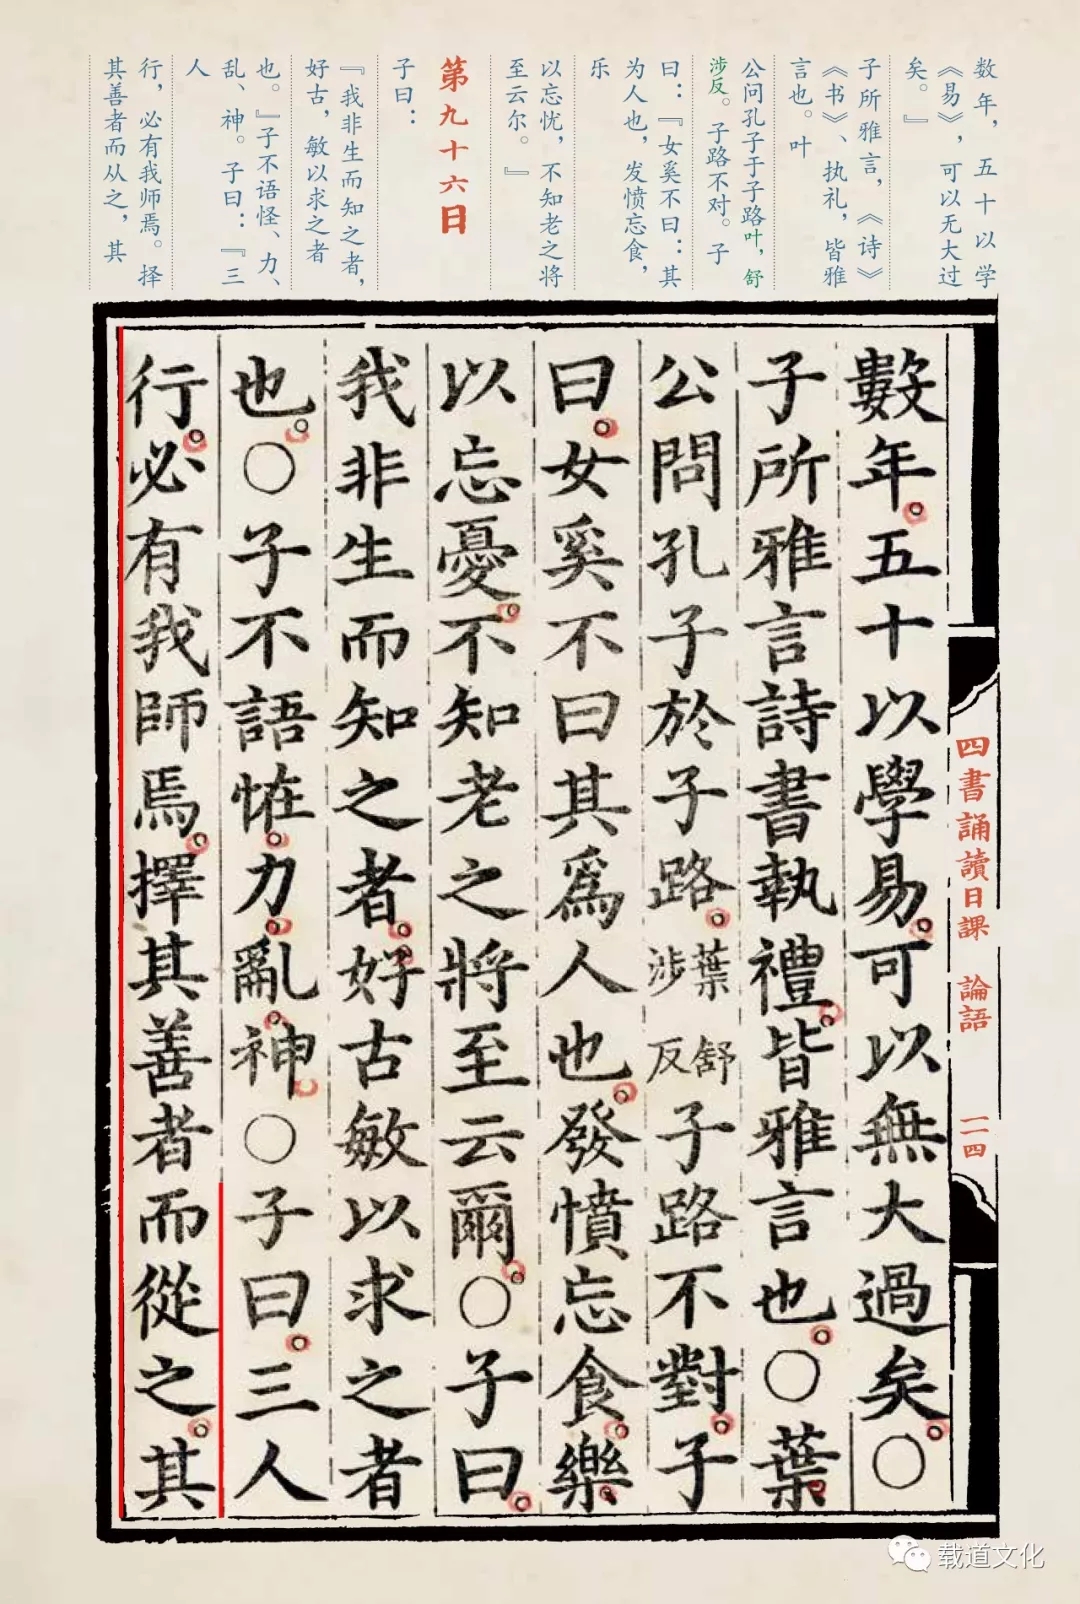 数年，五十以学
《易》，可以无大过
矣。』
子所雅言，《诗》
《书》、执礼，皆雅
言也。叶
公问孔子于子路叶，舒
涉反。子路不对。子
曰：『女奚不曰：其
为人也，发愤忘食，
乐
以忘忧，不知老之将
至云尔。』
第九十六日
子曰：
『我非生而知之者，
好古，敏以求之者
也。』子不语怪、力、
乱、神。子曰：『三
人
行，必有我师焉。择
其善者而从之，其
數年。五十以學易。可以無大過矣。〇
子所雅言詩書執禮。皆雅言也。〇葉
公問孔子於子路。葉舒涉反子路不對。子
曰。女奚不曰其為人也。發憤忘食。樂
以忘憂。不知老之將至云爾。〇子曰。
我非生而知之者。好古敏以求之者
也。〇子不語恠。力。亂。神。〇子曰。三人
行。必有我師焉。擇其善者而從之。其
四書誦讀日課 論語 一一四
载道文化